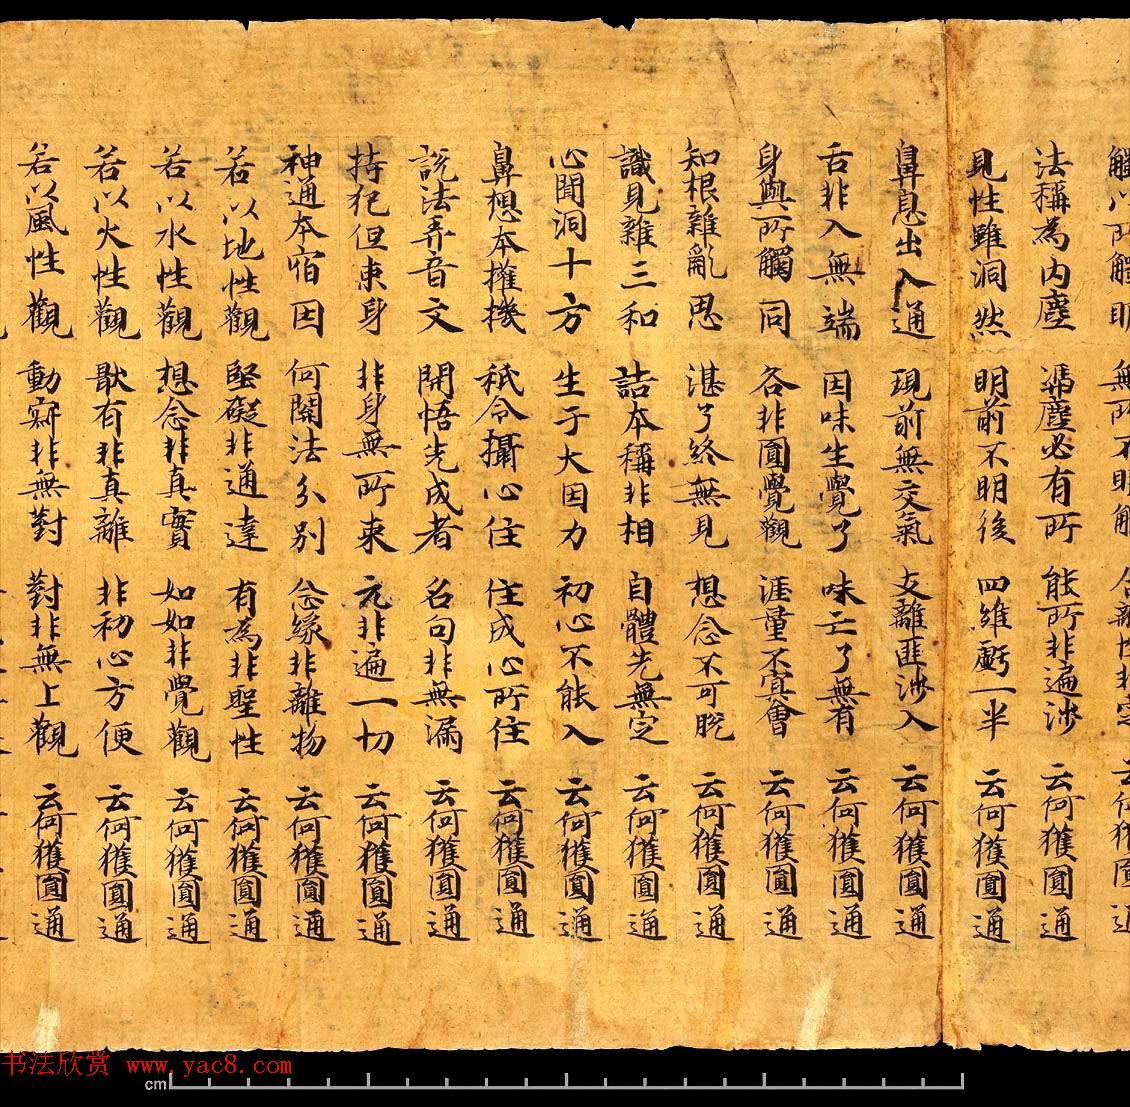 觸以所觸明 無所不明觸 合離性非定 云何獲圓通
法稱為內塵 馮塵必有所 能所非遍涉 云何獲圓通
見性雖洞然 明前不明後 四維虧一半 云何獲圓通
鼻息出入通 現前無交氣 支離匪涉入 云何獲圓通
舌非入無端 因味生覺了 味亡了無有 云何獲圓通
身與所觸同 各非圓覺觀 涯量不冥會 云何獲圓通
知根雜亂思 湛了終無見 想念不可脫 云何獲圓通
識見雜三和 詰本稱非相 自體先無定 云何獲圓通
心聞洞十方 生于大因力 初心不能入 云何獲圓通
鼻想本擁機 秖令攝心住 住成心所住 云何獲圓通
說法弄音文 開悟先成者 名句非無漏 云何獲圓通
持犯但束身 非身無所束 元非遍一切 云何獲圓通
神通本宿因 何關法分別 念緣非離物 云何獲圓通
若以地性觀 堅礙非通達 有為非聖性 云何獲圓通
若以水性觀 想念非真實 如如非覺觀 云何獲圓通
若以火性觀 猒有非真離 非初心方便 云何獲圓通
若以風性觀 動寂非無對 對非無上觀 云何獲圓通
书法欣赏 www.yac8.com
cm